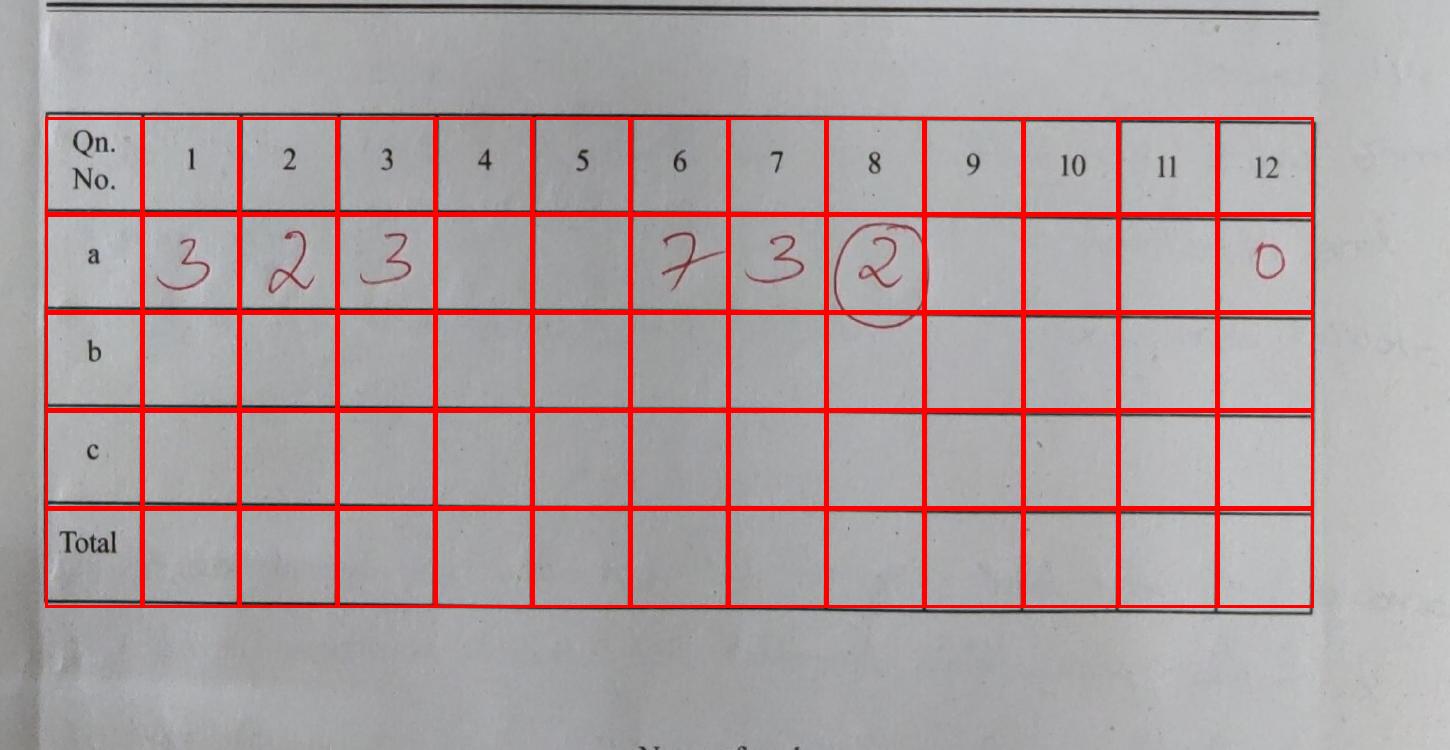 Qn. No. 1 2 3 4 5 6 7 8 9 10 11 12
a 3 2 3 7 3 2 0
b
c
Total